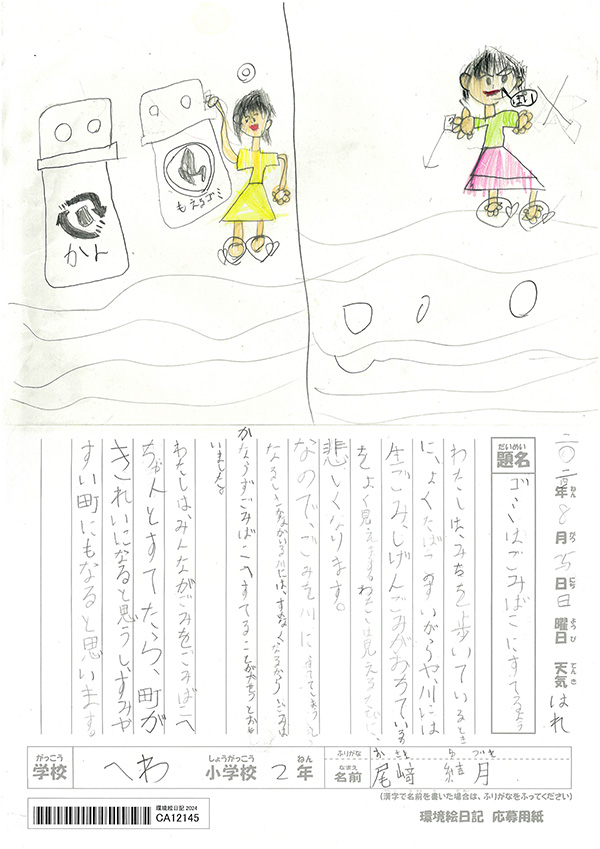 はい
もえるゴミ
かん
二〇二四年8月25日日曜日 天気はれ
ねん がつ にち ようび てんき
だいめい
題名
ゴミはごみばこにすてるよう
わたしは、みちを歩いているとき
に、よくたばこのすいがらや、川には
生ごみ、しげんごみがおちている
をよく見えます。わたしは見える
悲しくなります。
なので、ごみを川にすててしまう
かならずごみばこへすてることが
いました。
わたしは、みんながごみをごみばこへ
ちゃんとすてたら、町が
きれいになると思うし、すみや
すい町にもなると思います
がっこう
学校
へわ
しょうがっこう
小学校
2
ねん
年
ふりがな
なまえ
名前
尾﨑 結月
(漢字で名前を書いた場合は、ふりがなをふってください)
環境絵日記 2024
CA12145
環境絵日記 応募用紙